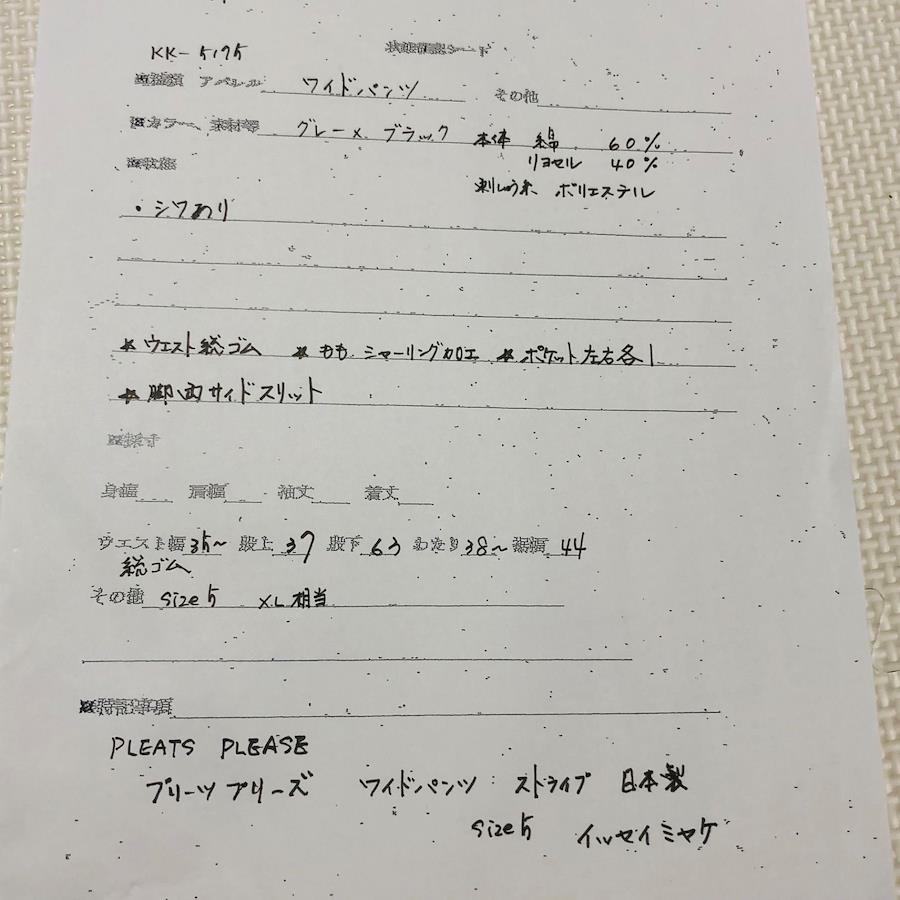 KK-5175 状態確認シート
■種類 アパレル ワイドパンツ その他
■カラー、素材等 グレー×ブラック 本体 綿 60%
リヨセル 40%
刺しゅう糸 ポリエステル
■状態
・シワあり
★ウエスト総ゴム ★もも シャーリング加工 ★ポケット左右各1
★脚両サイドスリット
■採寸
身幅 肩幅 袖丈 着丈
ウエスト幅 35~ 股上 37 股下 63 わたり 38~ 裾幅 44
総ゴム
その他 size5 XL相当
■特記事項
PLEATS PLEASE
プリーツプリーズ ワイドパンツ ストライプ 日本製
size5 イッセイミヤケ